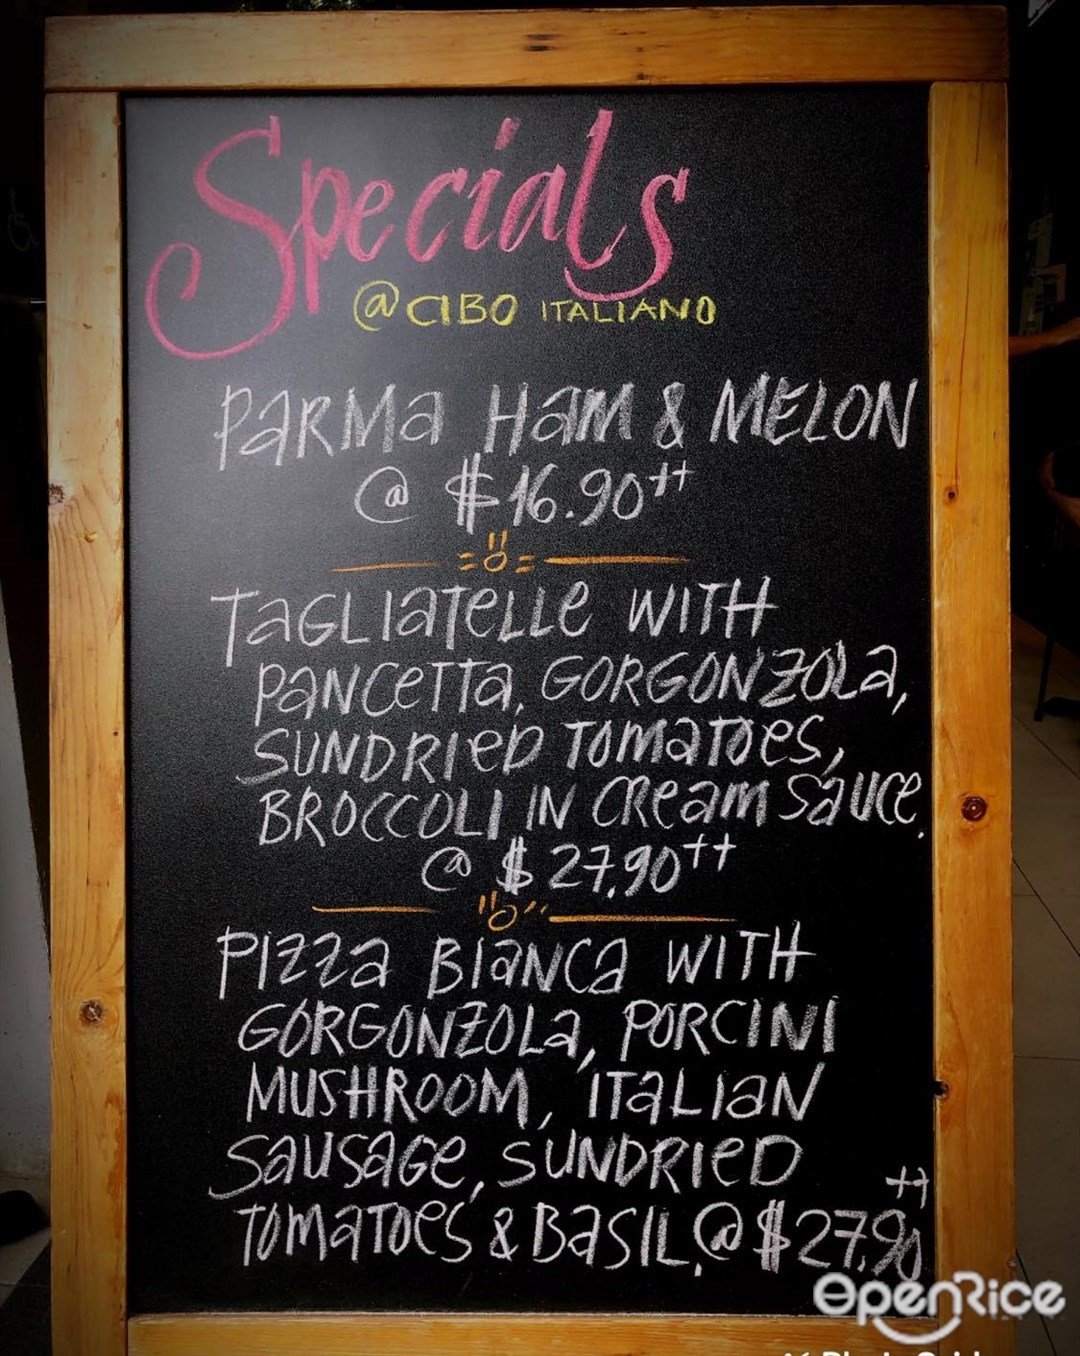 Specials
@ CIBO ITALIANO
PARMA HAM & MELON
@ $16.90++
TAGLIATELLE WITH
PANCETTA, GORGONZOLA,
SUNDRIED TOMATOES,
BROCCOLI IN CREAM SAUCE.
@ $27.90++
PIZZA BIANCA WITH
GORGONZOLA, PORCINI
MUSHROOM, ITALIAN
SAUSAGE, SUNDRIED
TOMATOES & BASIL. @ $27.90++
OpenRice